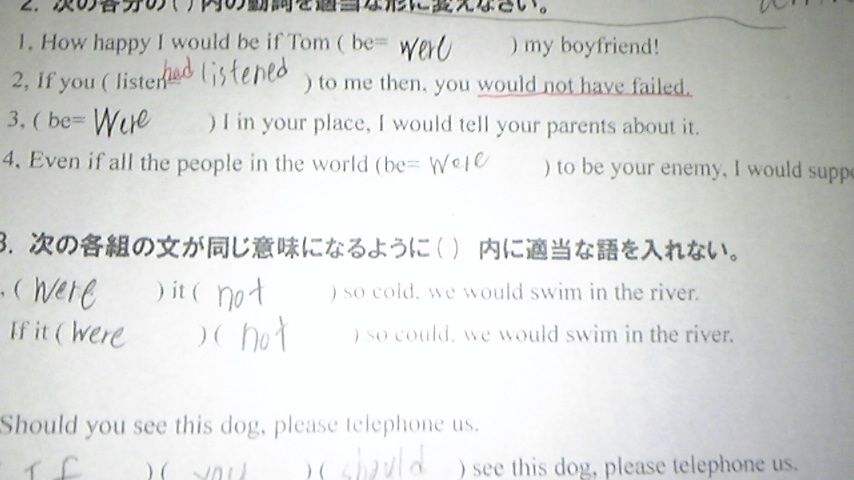 2. 次の各分の( )内の動詞を適当な形に変えなさい。
1. How happy I would be if Tom ( be= were ) my boyfriend!
2, If you ( listen= had listened ) to me then, you would not have failed.
3, ( be= Were ) I in your place, I would tell your parents about it.
4, Even if all the people in the world (be= were ) to be your enemy, I would
3. 次の各組の文が同じ意味になるように( ) 内に適当な語を入れない。
. ( Were ) it ( not ) so cold, we would swim in the river.
If it ( were ) ( not ) so could, we would swim in the river.
Should you see this dog, please telephone us.
If )( you )( should ) see this dog, please telephone us.